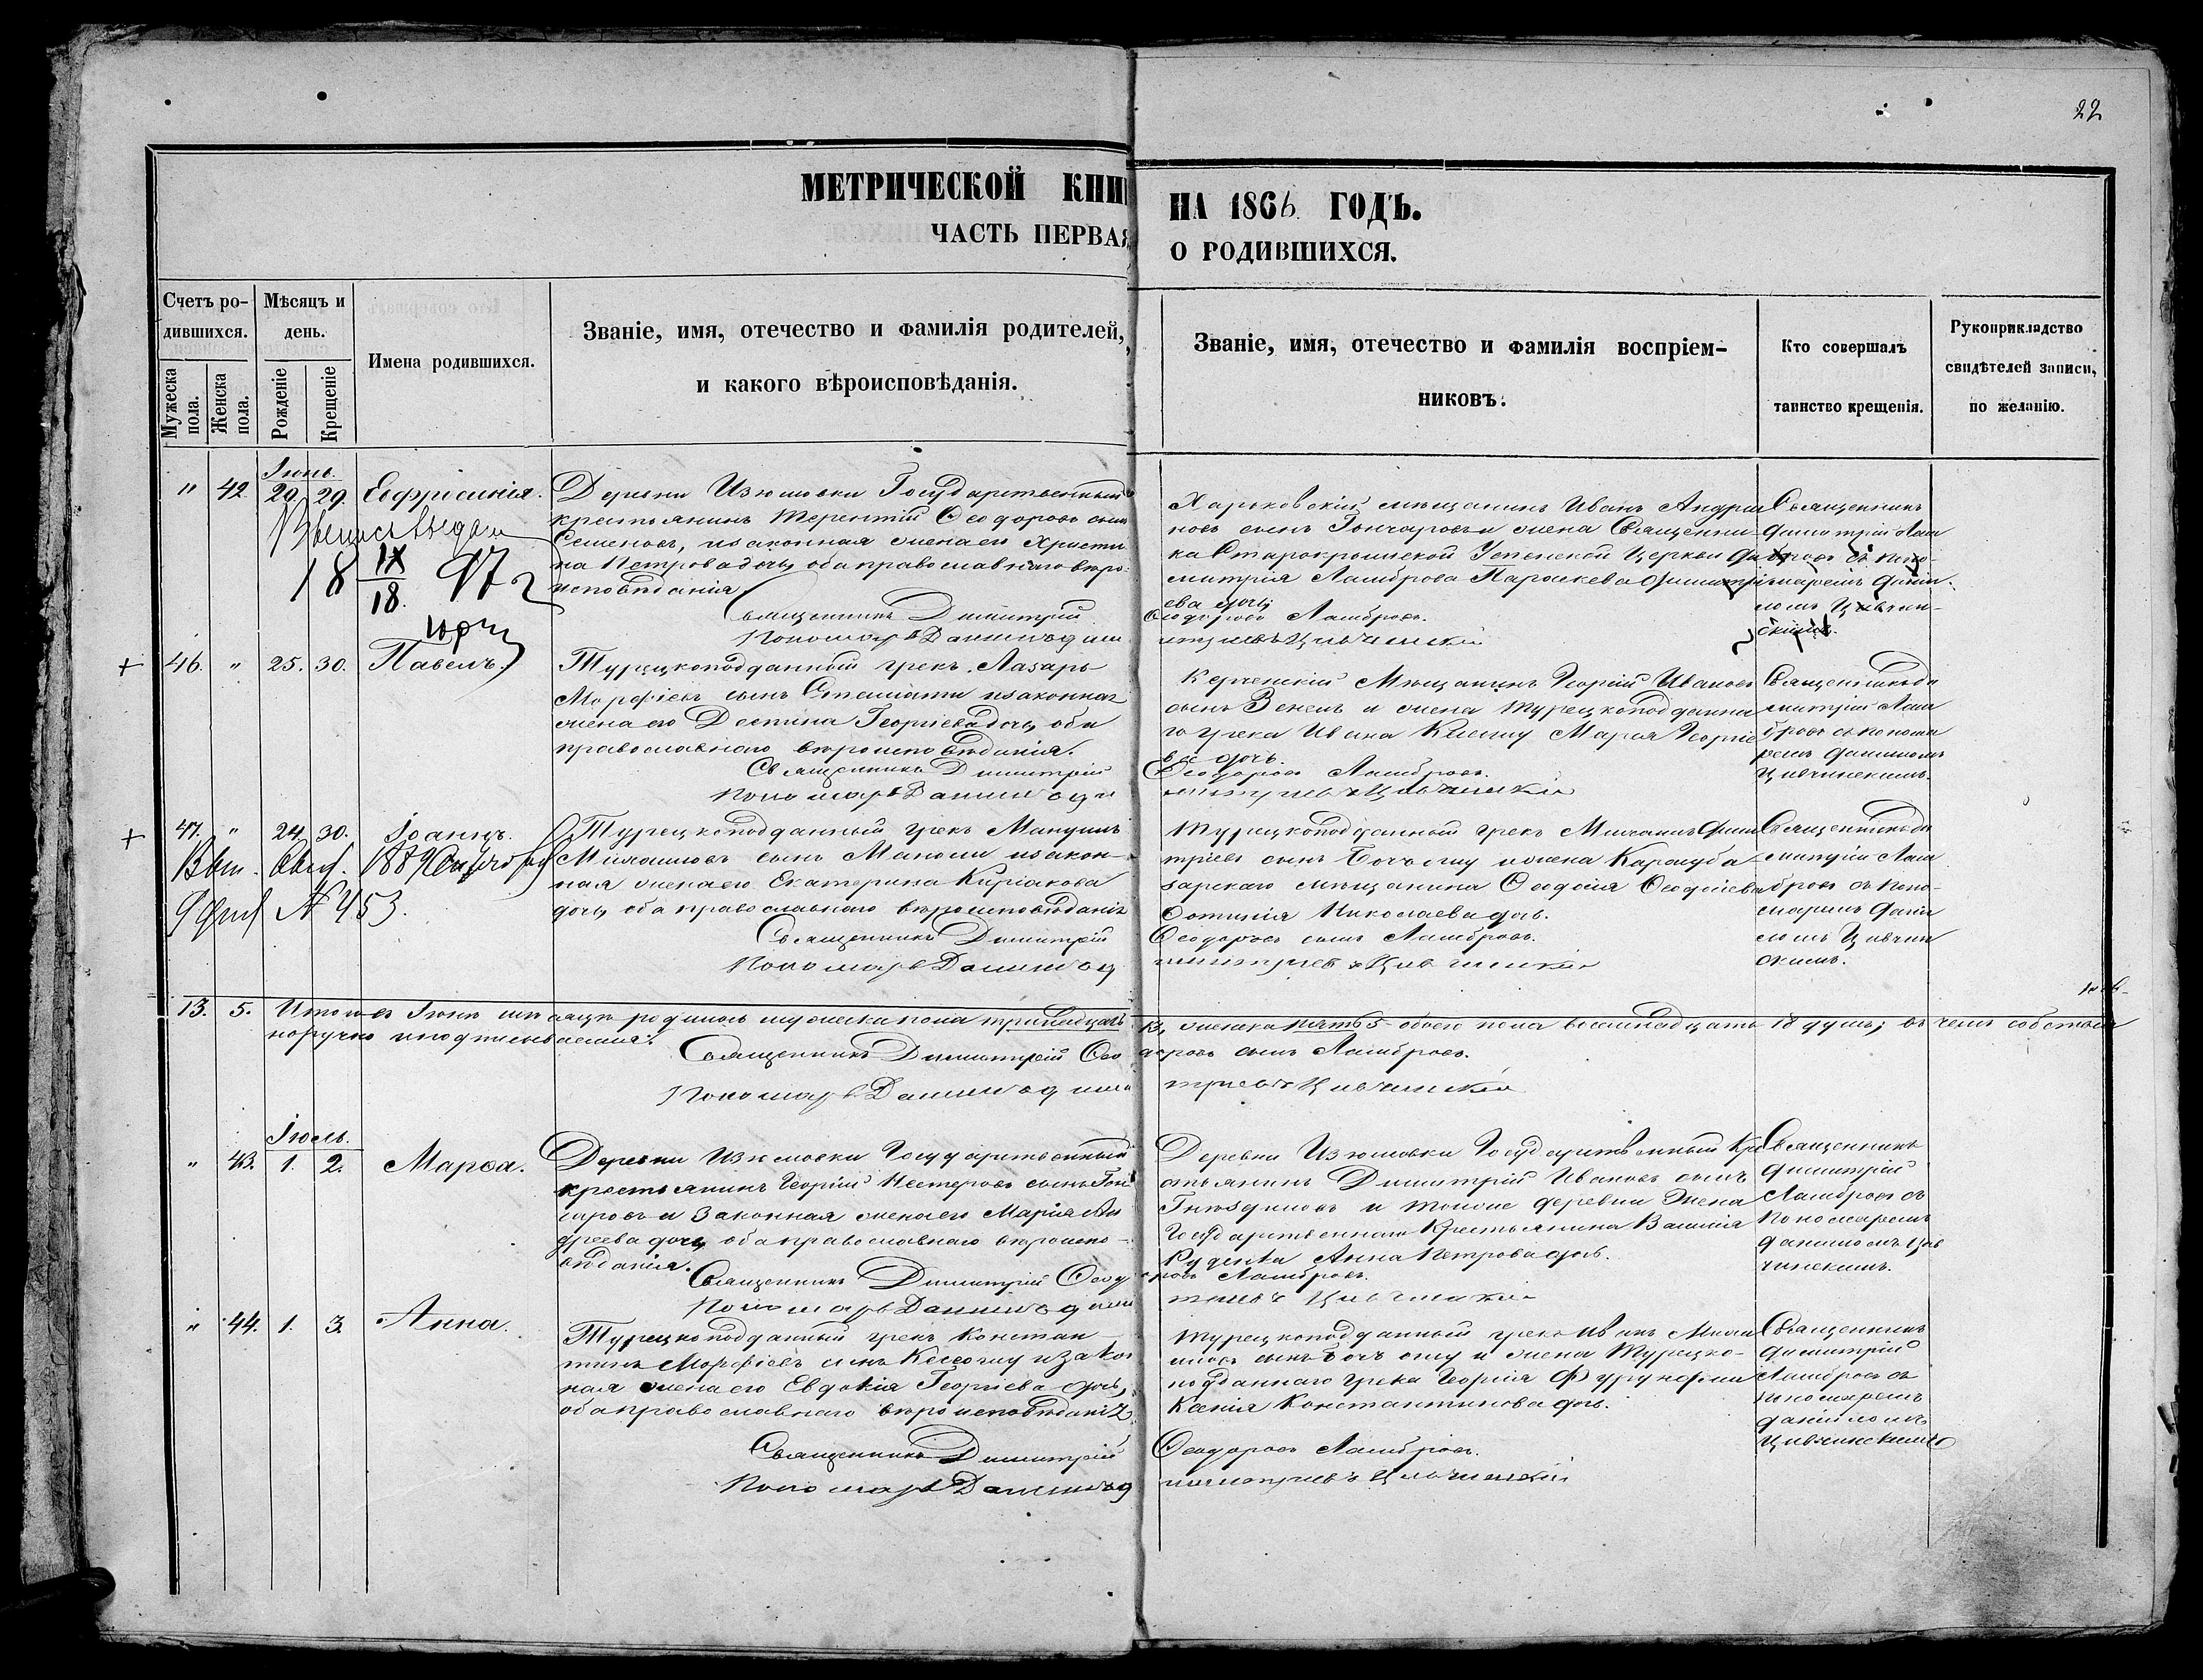 22
МЕТРИЧЕСКОЙ КНИ
НА 1866 ГОДЪ.
ЧАСТЬ ПЕРВАЯ
О РОДИВШИХСЯ.
Счетъ ро-
дившихся.
Мужеска пола.
Женска пола.
Мѣсяцъ и
день.
Рожденіе
Крещеніе
Имена родившихся.
Званіе, имя, отечество и фамилія родителей,
и какого вѣроисповѣданія.
Званіе, имя, отечество и фамилія воспріем-
никовъ.
Кто совершалъ
таинство крещенія.
Рукоприкладство
свидѣтелей записи,
по желанію.
Іюнь.
" 42 29. Евфросинія.
Деревни Изюмовки Государственный
крестьянинъ Терентій Ѳеодоровъ сынъ
Семеновъ, и законная жена его Христи
на Петрова дочь, оба православнаго вѣро-
исповѣданія.
Священникъ Димитрій
Пономарь Даніилъ
Харьковскій мѣщанинъ Иванъ Андрея
новъ сынъ Гончаровъ и жена Священни
ка Старокрымской Успенской Церкви Ди
митрія Ламброва Параскева Димитрі
ева дочь
Ѳеодоровъ Ламбровъ.
Священникъ
Димитрій Лам
бровъ съ поно-
маремъ Даніи
ломъ Цивчин-
скимъ.
18 IX/18 97
46. " 25. 30. Павелъ.
Турецкоподданный грекъ Лазарь
Морфіевъ сынъ Стамати и законная
жена его Деспина Георгіева дочь, оба
православнаго вѣроисповѣданія.
Священникъ Димитрій
Пономарь Даніилъ
Керченскій Мѣщанинъ Георгій Ивановъ
сынъ и жена Турецкоподданна
го грека Ивана Марія Георгіе
ва дочь.
Ѳеодоровъ Ламбровъ.
Священникъ Ди
митрій Лам
бровъ съ понома
ремъ Даніиломъ
Цивчинскимъ.
47. " 24. 30. Іоаннъ.
188
№ 453.
Турецкоподданный грекъ
сынъ Маноли и закон-
ная жена его Екатерина Киріакова
дочь, оба православнаго вѣроисповѣданія
Священникъ Димитрій
Пономарь Даніилъ
Турецкоподданный грекъ Дими
тріевъ сынъ и жена Карасуба
зарскаго мѣщанина Ѳеодосія Ѳеодосіева
Николаева дочь.
Ѳеодоровъ сынъ Ламбровъ.
Священникъ Ди
митрій Лам
бровъ съ поно-
маремъ Даніи
ломъ Цивчин
скимъ.
13. 5. Итого въ Іюнѣ мѣсяцѣ родилось мужеска пола тринадцать
13, женска пять 5 обоего пола восемнадцать 18 душъ; въ чемъ собствен
норучно и подписываемся.
Священникъ Димитрій Ѳео
доровъ сынъ Ламбровъ.
Пономарь Даніилъ Дими
тріевъ Цивчинскій
Іюль.
" 43. 1. 2. Марѳа.
Деревни Изюмовки Государственный
крестьянинъ Георгій Нестеровъ сынъ Гон
чаровъ и Законная жена его Марія Ан
дреева дочь, оба православнаго вѣроиспо-
вѣданія.
Священникъ Димитрій Ѳеод
Пономарь Даніилъ Дими
Деревни Изюмовки Государственный Кре
стьянинъ Димитрій Ивановъ сынъ
Гнѣздиловъ и тойже деревни Жена
Государственнаго Крестьянина Василія
Руденка Анна Петрова дочь.
оровъ Ламбровъ.
тріевъ Цивчинскій
Священникъ
Димитрій
Ламбровъ съ
Пономаремъ
Даніиломъ Цив
чинскимъ.
" 44. 1. 3. Анна.
Турецкоподданный грекъ Констан
тинъ Морфіевъ сынъ и закон
ная жена его Евдокія Георгіева дочь,
оба православнаго вѣроисповѣданія
Священникъ Димитрій
Пономарь Даніилъ Д
Турецкоподданный грекъ Иванъ
сынъ и жена Турецко-
подданнаго грека Георгія
Ксенія Константинова дочь.
Ѳеодоровъ Ламбровъ.
Димитріевъ Цивчинскій
Священникъ
Димитрій
Ламбровъ съ
пономаремъ
Даніиломъ
Цивчинскимъ